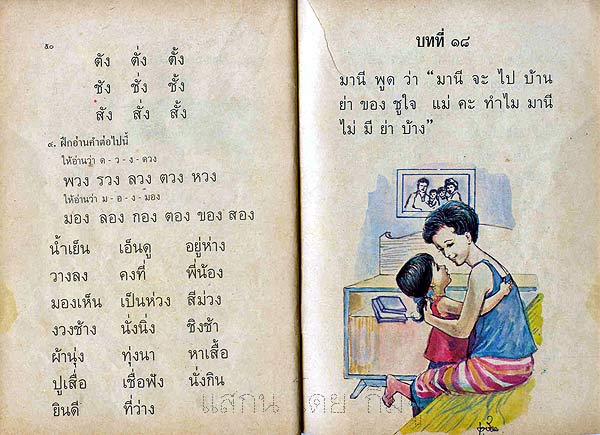 ๕๐
ตัง ตั่ง ตั้ง
ชัง ชั่ง ชั้ง
สัง สั่ง สั้ง
๔. ฝึกอ่านคำต่อไปนี้
ให้อ่านว่า ด - ว - ง - ดวง
พวง รวง ลวง ตวง หวง
ให้อ่านว่า ม - อ - ง - มอง
มอง ลอง กอง ตอง ของ สอง
น้ำเย็น เอ็นดู อยู่ห่าง
วางลง คงที่ พี่น้อง
มองเห็น เป็นห่วง สีม่วง
งวงช้าง นั่งนิ่ง ชิงช้า
ผ้านุ่ง ทุ่งนา หาเสื้อ
ปูเสื่อ เชื่อฟัง นั่งกิน
ยินดี ที่ว่าง
บทที่ ๑๘
มานี พูด ว่า “มานี จะ ไป บ้าน
ย่า ของ ชูใจ แม่ คะ ทำไม มานี
ไม่ มี ย่า บ้าง”
แสกน โดย